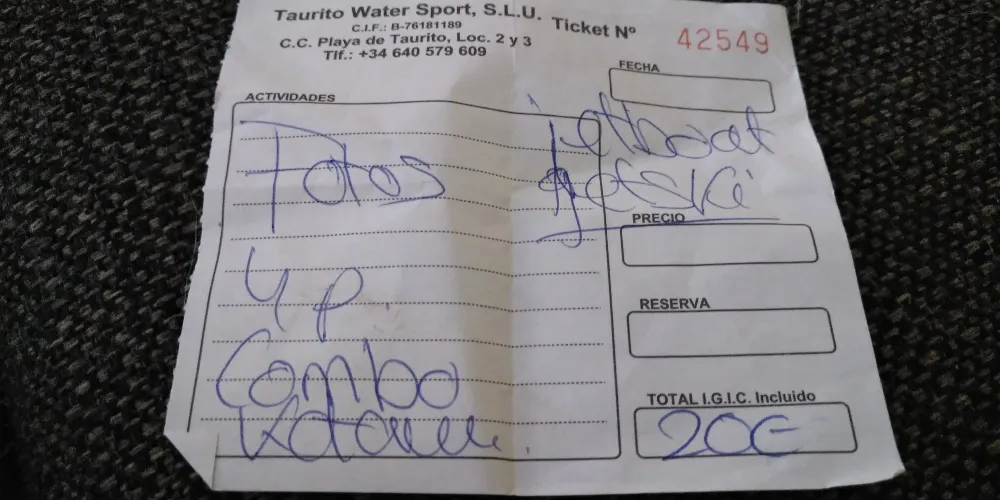 Taurito Water Sport, S.L.U.
C.I.F.: B-76181189
C.C. Playa de Taurito, Loc. 2 y 3
Tlf.: +34 640 579 609
Ticket Nº 42549
FECHA
ACTIVIDADES
jetboat
jetski
Fotos
4 p.
Combo
PRECIO
RESERVA
TOTAL I.G.I.C. Incluido
20€